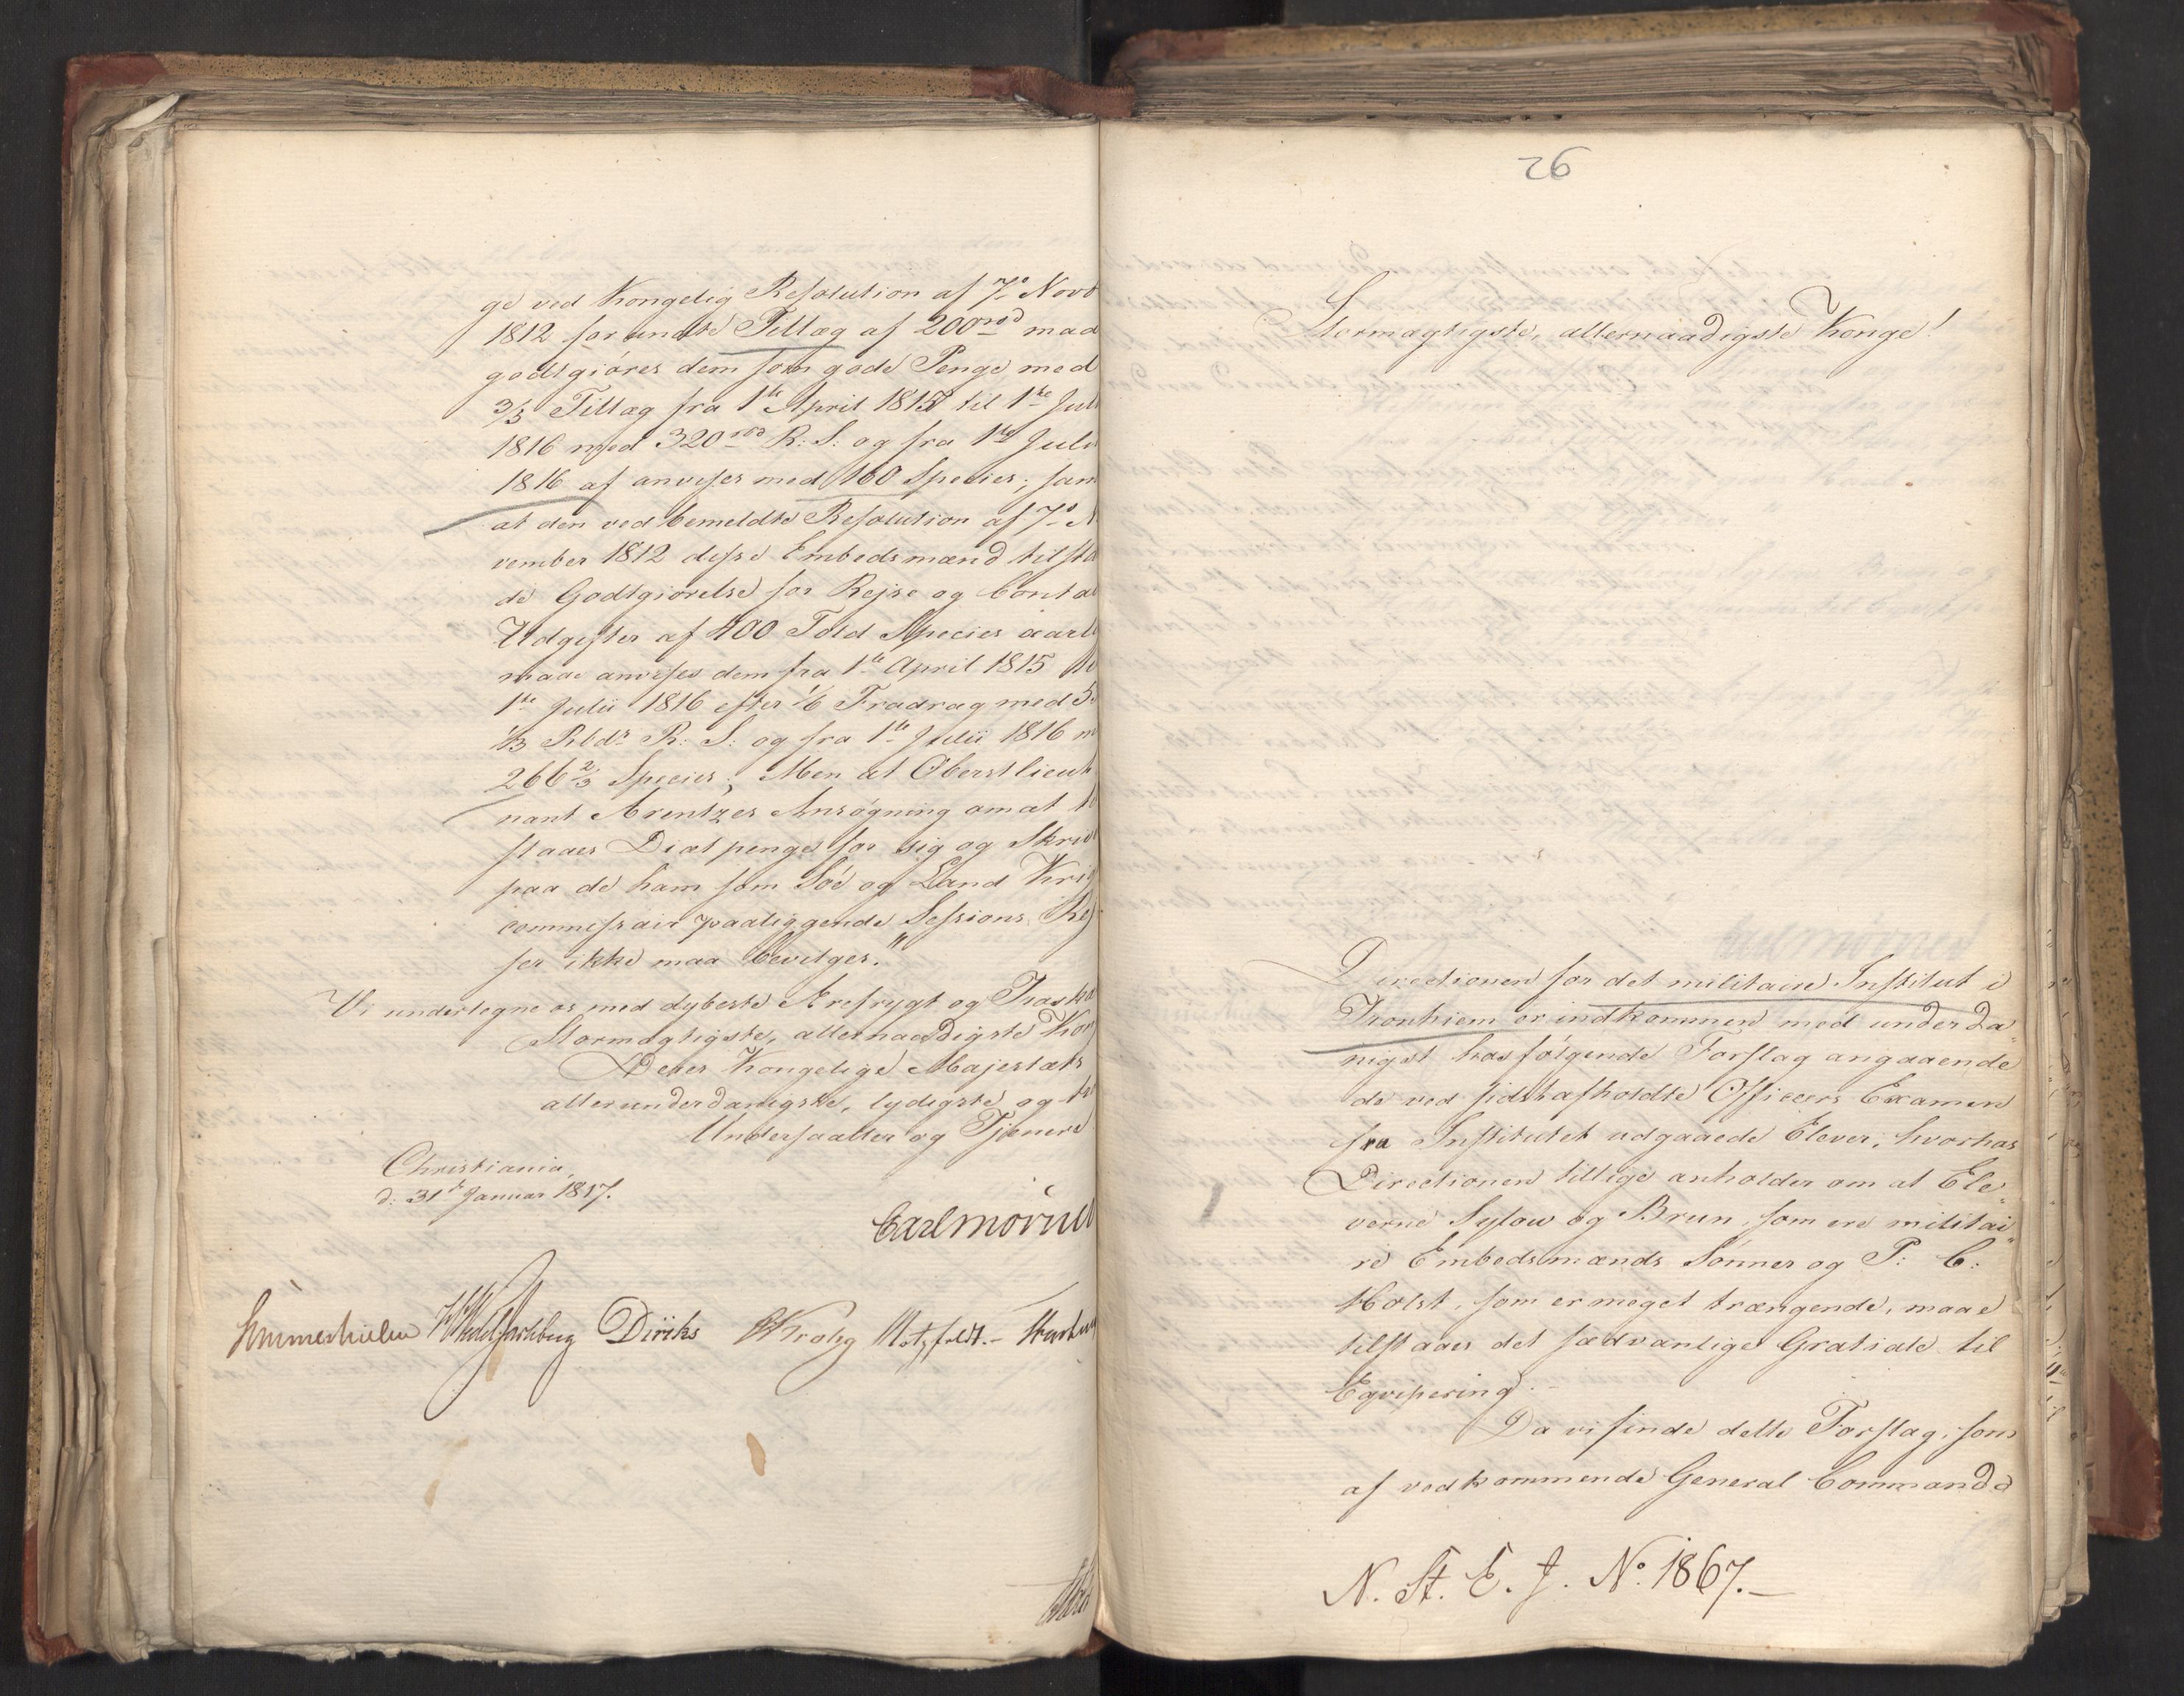 ge ved Kongelig Resolution af 7de Novb
1812 forundte Tillæg af 200rbd maa
godtgiöres dem som gode Penge med
3/5 Tillæg fra 1te April 1815 til 1te Juli
1816 med 320 rbd R: S: og fra 1te Julii
1816 af anvises med 160 Species; sam
at den ved bemeldte Resolution af 7de N
vember 1812 disse Embedsmænd tilsta
de Godtgiörelse for Rejse og Contoi
Udgifter af 400 Told Species aarl
maae anvises dem fra 1te April 1815 til
1te Julii 1816 efter 1/6 Fradrag med 5
1/3 Rbdr R: S: og fra 1te Julii 1816 m
266 2/3 Species; Men at Oberstlieut
nant Arentzes Ansögning om at ti
staaes Diætpenge for sig og Skriv
paa de ham som Söe og Land Krigs
commissair paaliggende Sessions Rej
ser ikke maa bevilges."
Vi undertegne os med dybeste Ærefrygt og Troska
Stormægtigste, allernaadigste Kon
Deres Kongelige Majestæts
allerunderdanigste, lydigste og tr
Undersaatter og Tjenere
Christiania,
d: 31te Januar 1817.
Carl Mörner
Sommerhielm HWedelJarlsberg Diriks Krohg Motzfeldt.- 
26
Stormægtigste, allernaadigste Konge!
Directionen for det militaire Institut i
Tronhiem er indkommen med underda"
nigst hosfølgende Forslag angaaende
de ved sidst afholdte Officeers Examen
fra Institutet udgaaede Elever, hvorhos
Directionen tillige anholder om at Ele"
verne Sylow og Brun, som ere militai"
re Embedsmænds Sönner og P: C:
Holst, som er meget trængende, maae
tilstaaes det sædvanlige Gratiale til
Eqvipering.
Da vi finde dette Forslag, som
af vedkommende General Commando
N. St. E. J. No. 1867.-